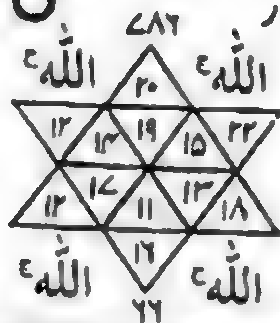 ۷۸۶
الله ع الله ع
۲۰
۱۲ ۱۳ ۱۹ ۱۵ ۲۲
۱۲ ۱۷ ۱۱ ۱۳ ۱۸
۱۶
الله ع الله ع
۶۶